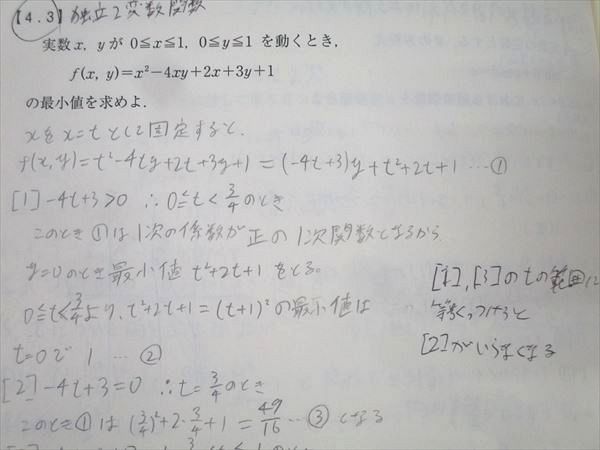 【4.3】独立2変数関数
実数x, yが 0≦x≦1, 0≦y≦1 を動くとき,
f(x, y)=x²−4xy+2x+3y+1
の最小値を求めよ.
xをx=tとして固定すると.
f(x,y)=t²-4ty+2t+3y+1 = (-4t+3)y+t²+2t+1 …①
[1] -4t+3>0 ∴0≦t<3/4のとき
このとき①は1次の係数が正の1次関数となるから
y=0のとき最小値 t²+2t+1をとる。
0≦t<3/4より、t²+2t+1=(t+1)²の最小値は
t=0で 1 …②
[2] -4t+3=0 ∴t=3/4のとき
このとき①は (3/4)²+2・3/4+1 = 49/16 …③ となる
[1],[3]のtの範囲に
等号くっつけると
[2]がいらなくなる